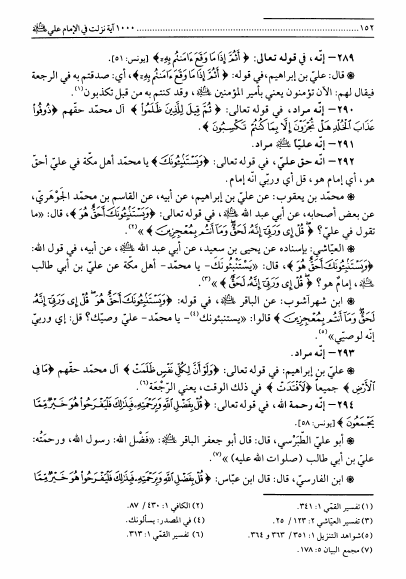 ١٥٢ ........ ١٠٠٠ آية نزلت في الإمام علي ﵇
٢٨٩- إنّه، في قوله تعالى: ﴿ أَثُمَّ إِذَا مَا وَقَعَ ءَامَنتُم بِهِ ﴾ [يونس: ٥١].
❁ قال: عليّ بن إبراهيم، في قوله: ﴿ أَثُمَّ إِذَا مَا وَقَعَ ءَامَنتُم بِهِ ﴾، أي: صدقتم به في الرجعة
فيقال لهم: الآن تؤمنون يعني بأمير المؤمنين ﵇، وقد كنتم به من قبل تكذبون(١).
٢٩٠- إنّه مراد، في قوله تعالى: ﴿ ثُمَّ قِيلَ لِلَّذِينَ ظَلَمُواْ ﴾ آل محمّد حقّهم ﴿ ذُوقُواْ
عَذَابَ الْخُلْدِ هَلْ تُجْزَوْنَ إِلَّا بِمَا كُنتُمْ تَكْسِبُونَ ﴾.
٢٩١- إنّه عليّاً ﵇ مراد.
٢٩٢- إنّه حق عليّ، في قوله تعالى: ﴿ وَيَسْتَنۢبِئُونَكَ ﴾ يا محمّد أهل مكّة في عليّ أحقّ
هو، أي إمام هو، قل أي وربّي انّه إمام.
❁ محمّد بن يعقوب: عن عليّ بن إبراهيم، عن أبيه، عن القاسم بن محمّد الجَوْهَريّ،
عن بعض أصحابه، عن أبي عبد الله ﵇، في قوله تعالى: ﴿ وَيَسْتَنۢبِئُونَكَ أَحَقٌّ هُوَ ﴾، قال: «ما
تقول في عليّ؟ ﴿ قُلْ إِى وَرَبِّى إِنَّهُ لَحَقٌّ وَمَا أَنتُم بِمُعْجِزِينَ ﴾»(٢).
❁ العيّاشي: بإسناده عن يحيى بن سعيد، عن أبي عبد الله ﵇، عن أبيه، في قول الله:
﴿ وَيَسْتَنۢبِئُونَكَ أَحَقٌّ هُوَ ﴾، قال: «يستنبئونك - يا محمّد - أهل مكّة عن عليّ بن أبي طالب
﵇، إمامٌ هو؟ ﴿ قُلْ إِى وَرَبِّى إِنَّهُ لَحَقٌّ ﴾»(٣).
❁ ابن شهرآشوب: عن الباقر ﵇، في قوله: ﴿ وَيَسْتَنۢبِئُونَكَ أَحَقٌّ هُوَ قُلْ إِى وَرَبِّى إِنَّهُ
لَحَقٌّ وَمَا أَنتُم بِمُعْجِزِينَ ﴾ قالوا: «يستنبئونك(٤) - يا محمّد - عليّ وصيّك؟ قل: إي وربّي
إنّه لوصيّي»(٥).
٢٩٣- إنّه مراد.
❁ عليّ بن إبراهيم: في قوله تعالى: ﴿ وَلَوْ أَنَّ لِكُلِّ نَفْسٍ ظَلَمَتْ ﴾ آل محمّد حقّهم ﴿ مَا فِى
الْأَرْضِ ﴾ جميعاً ﴿ لَافْتَدَتْ ﴾ في ذلك الوقت، يعني الرجْعَة(٦).
٢٩٤- إنّه رحمة الله، في قوله تعالى: ﴿ قُلْ بِفَضْلِ اللَّهِ وَبِرَحْمَتِهِ فَبِذَٰلِكَ فَلْيَفْرَحُواْ هُوَ خَيْرٌ مِّمَّا
يَجْمَعُونَ ﴾ [يونس: ٥٨].
❁ أبو عليّ الطَّبَرْسي، قال: قال أبو جعفر الباقر ﵇: «فضْل الله: رسول الله، ورحمتُه:
عليّ بن أبي طالب (صلوات الله عليه)»(٧).
❁ ابن الفارسيّ، قال: قال ابن عبّاس: ﴿ قُلْ بِفَضْلِ اللَّهِ وَبِرَحْمَتِهِ فَبِذَٰلِكَ فَلْيَفْرَحُواْ هُوَ خَيْرٌ مِّمَّا
(١) تفسير القمّي ١: ٣٤١. (٢) الكافي ١: ٤٣٠ / ٨٧.
(٣) تفسير العيّاشي ٢: ١٢٣ / ٢٥. (٤) في المصدر: يسألونك.
(٥) شواهد التنزيل ١: ٣٥١ / ٣٦٣ و ٣٦٤. (٦) تفسير القمّي ١: ٣١٣.
(٧) مجمع البيان ٥: ١٧٨.